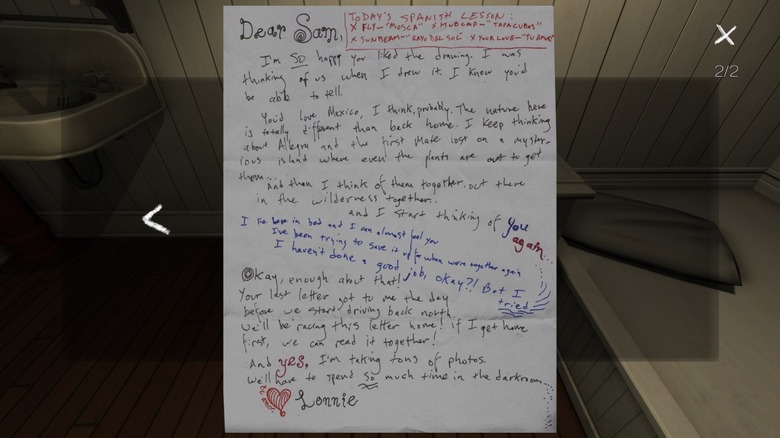 Dear Sam,
TODAY'S SPANISH LESSON:
x FLY = "MOSCA" x HUBCAP = "TAPACUBOS"
x SUNBEAM = "RAYO DEL SOL" x YOUR LOVE = "TU AMOR"
2/2
I'm SO happy you liked the drawing. I was
thinking of us when I drew it. I knew you'd
be able to tell.
You'd love Mexico, I think, probably. The nature here
is totally different than back home. I keep thinking
about Allegra and the First Mate lost on a myster-
ious island where even the plants are out to get
them...
And then I think of them together.. out there
in the wilderness together..
and I start thinking of you
again
I lie here in bed and I can almost feel you
I've been trying to save it up for when we're together again
I haven't done a good job, okay?! But I
tried
Okay, enough about that!
Your last letter got to me the day
before we start driving back north.
We'll be racing this letter home! If I get home
first, we can read it together!
And yes, I'm taking tons of photos.
We'll have to spend so much time in the darkroom...
Lonnie